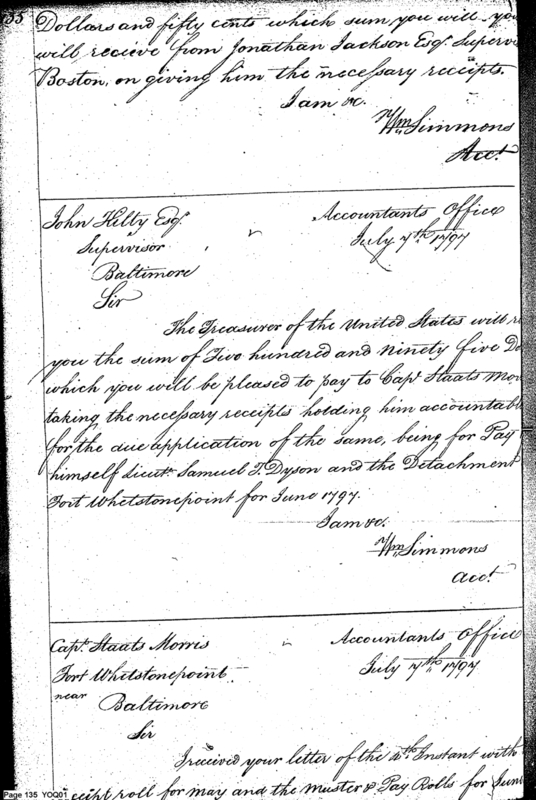 135
Dollars and fifty cents which sum, you will you
will recieve from Jonathan Jackson Esqr. Superv
Boston, on giving him the necessary receipts.
I am &c.
Wm. Simmons
Acct.
John Kilty Esqr.
Accountants Office
Supervisor
July 7th. 1797
Baltimore
Sir
The Treasurer of the United States will r
you the sum of Two hundred and ninety five Do
which you will be pleased to pay to Capt. Staats Mor
taking the necessary receipts holding him accountab
for the due application of the same, being for Pay
himself Lieut. Samuel T. Dyson and the Detachment
Fort Whetstonepoint for June 1797.
I am &c.
Wm. Simmons
acct.
Capt. Staats Morris
Accountants Office
Fort Whetstonepoint
July 7th. 1797
near
Baltimore
Sir
I received your letter of the 4th. Instant with
ceipt roll for may and the Muster & Pay Rolls for June
Page 135 YOQ01